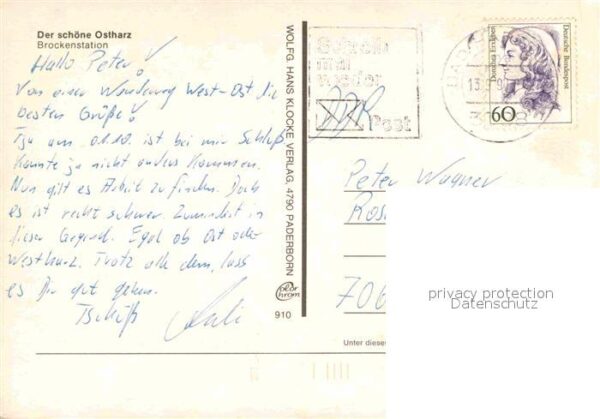 Der schöne Ostharz
Brockenstation
Hallo Peter!
Von einer Wanderung West-Ost die
besten Grüße!
Tja am 01.10. ist bei mir Schluß
konnte ja nicht anders kommen.
Nun gilt es Arbeit zu finden. Doch
es ist recht schwer. Zumindest in
dieser Gegend. Egal ob Ost oder
Westharz. Trotz alle dem, lass
es Dir gut gehen.
Tschüß
WOLFG. HANS KLOCKE VERLAG, 4790 PADERBORN
910
Schreib
mal
wieder
Post
13
Deutsche Bundespost
60
Peter Wagner
Ros
706
privacy protection
Datenschutz
Unter diese